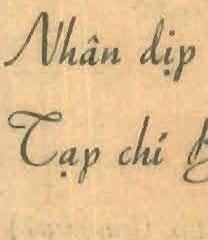 Nhân dịp
Tạp chí